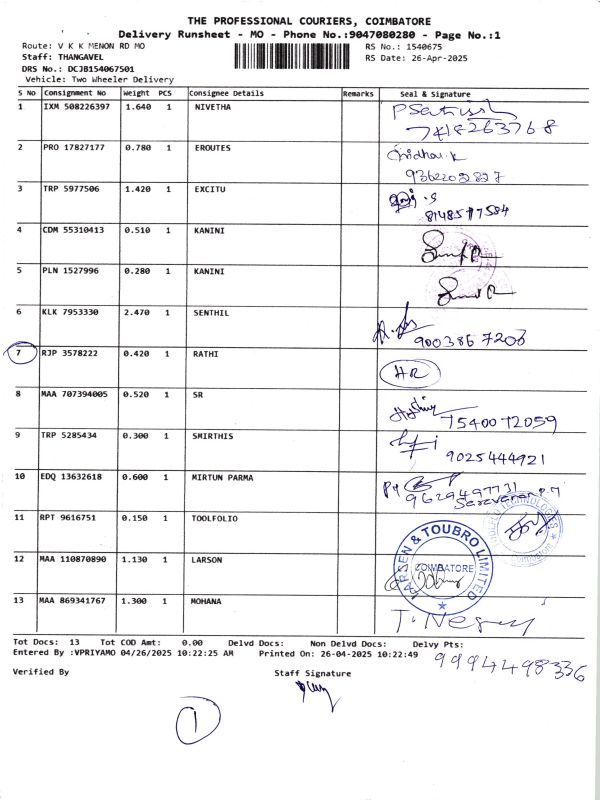 THE PROFESSIONAL COURIERS, COIMBATORE
Delivery Runsheet - MO - Phone No.:9047080280 - Page No.:1
Route: V K K MENON RD MO RS No.: 1540675
Staff: THANGAVEL RS Date: 26-Apr-2025
DRS No.: DCJB154067501
Vehicle: Two Wheeler Delivery
S No Consignment No Weight PCS Consignee Details Remarks Seal & Signature
1 IXM 508226397 1.640 1 NIVETHA
7418263768
2 PRO 17827177 0.780 1 EROUTES
9362202827
3 TRP 5977506 1.420 1 EXCITU
8148577584
4 CDM 55310413 0.510 1 KANINI
5 PLN 1527996 0.280 1 KANINI
6 KLK 7953330 2.470 1 SENTHIL
9003867203
7 RJP 3578222 0.420 1 RATHI
HR
8 MAA 707394005 0.520 1 SR
7540072059
9 TRP 5285434 0.300 1 SMIRTHIS
9025444921
10 EDQ 13632618 0.600 1 MIRTUN PARMA
9629497731
11 RPT 9616751 0.150 1 TOOLFOLIO
12 MAA 110870890 1.130 1 LARSON
LARSEN & TOUBRO LIMITED
COIMBATORE
13 MAA 869341767 1.300 1 MOHANA
Tot Docs: 13 Tot COD Amt: 0.00 Delvd Docs: Non Delvd Docs: Delvy Pts:
9994498336
Entered By :VPRIYAMO 04/26/2025 10:22:25 AM Printed On: 26-04-2025 10:22:49
Verified By Staff Signature
1